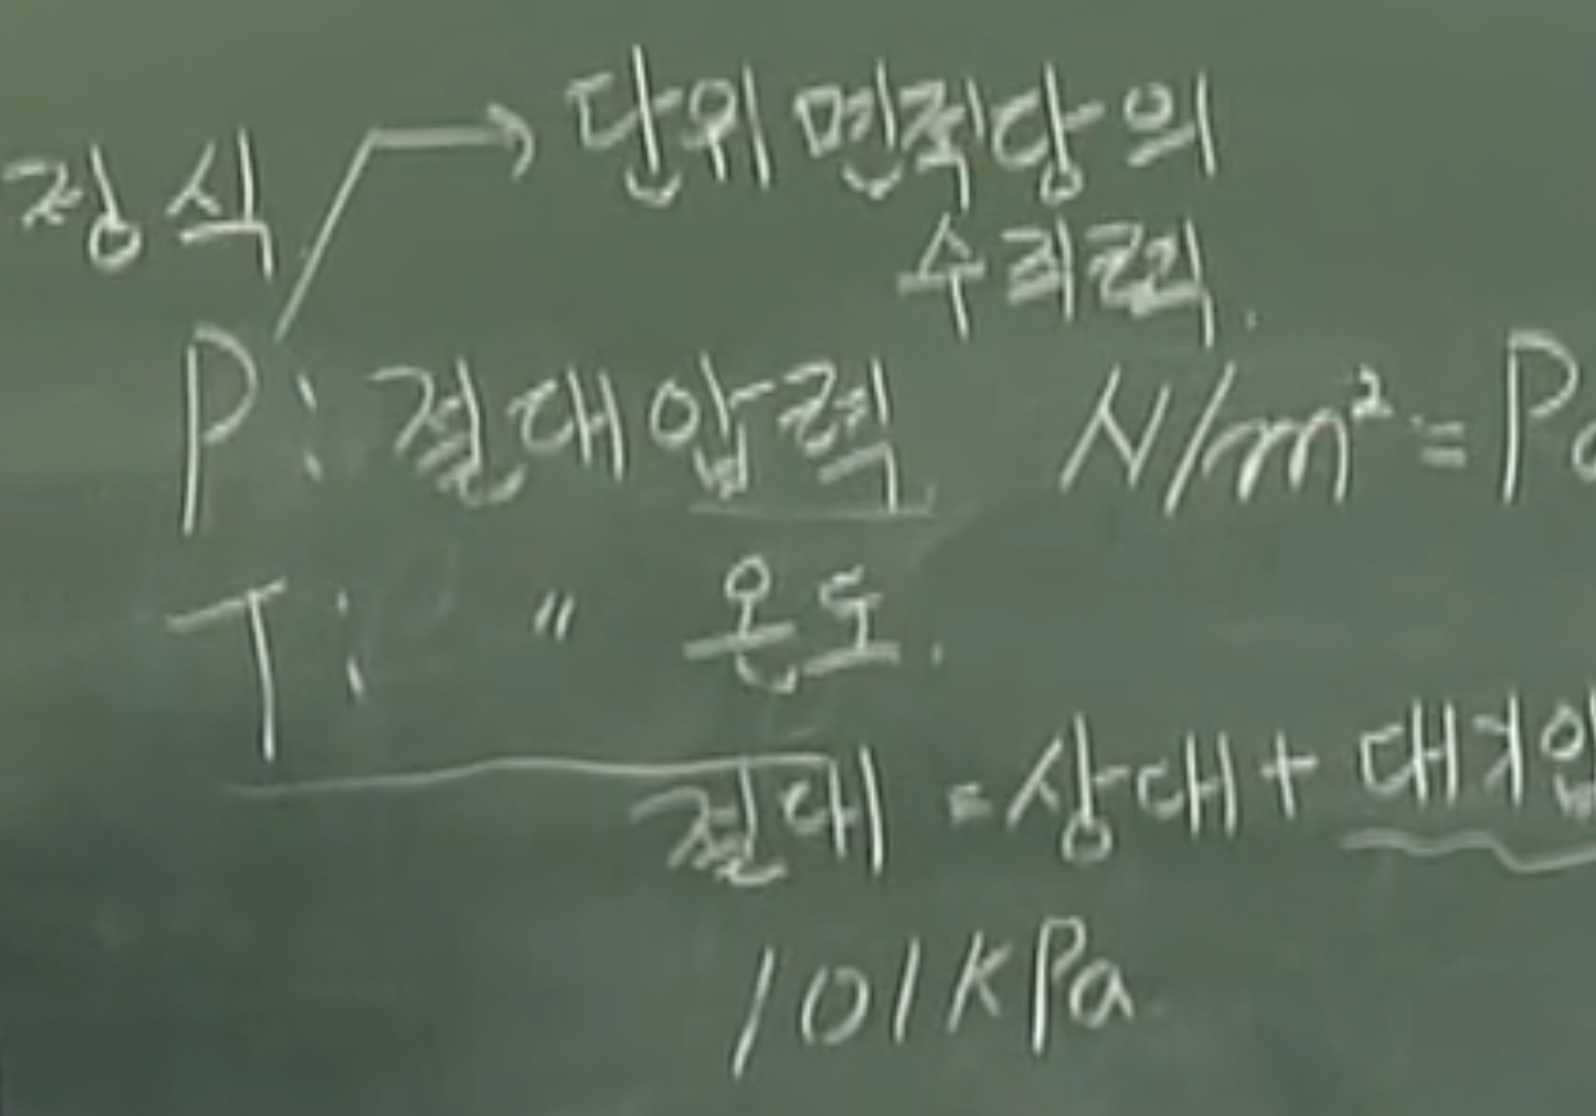 정식
단위 면적당의
수직력.
P : 절대압력. N/m² = Pa
T : " 온도.
절대 = 상대 + 대기압
101kPa